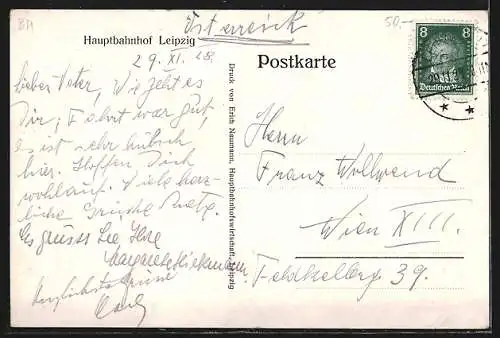 BM
Österreich
50.-
Hauptbahnhof Leipzig
29. XI. 28.
Lieber Vater, Wie geht es
Dir; Fahrt war gut,
es ist sehr hübsch
hier. Hoffen Dich
wohlauf. Viele herz-
liche Grüsse
Es grüsst Sie Ihre
Margarete
Herzlichste Grüsse
Druck von Erich Naumann, Hauptbahnhofswirtschaft, Leipzig
8 8
Deutsches Reich
Postkarte
Herrn
Franz Wollwend
Wien XIII.
Feldkellerg 39.